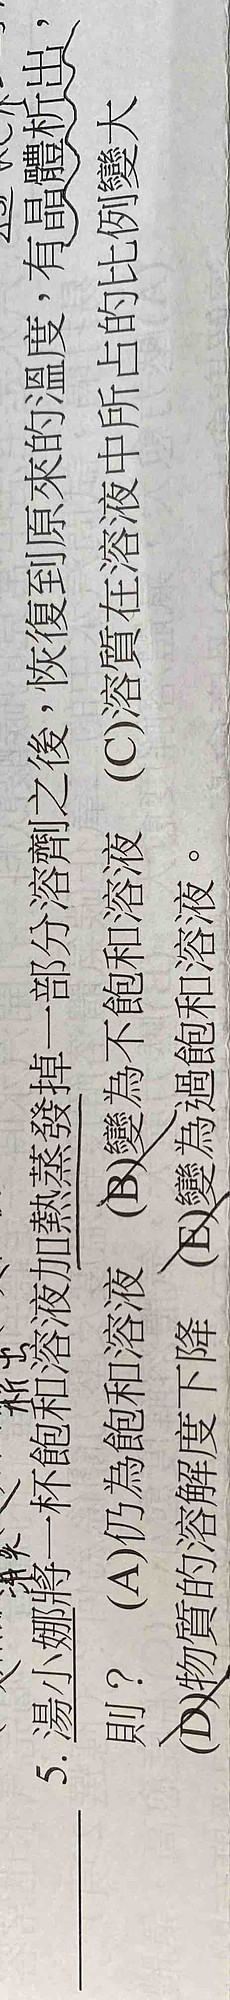 5. 湯小娜將一杯飽和溶液加熱蒸發掉一部分溶劑之後，恢復到原來的溫度，有晶體析出，
則？ (A)仍為飽和溶液 (B)變為不飽和溶液 (C)溶質在溶液中所占的比例變大
(D)物質的溶解度下降 (E)變為過飽和溶液。